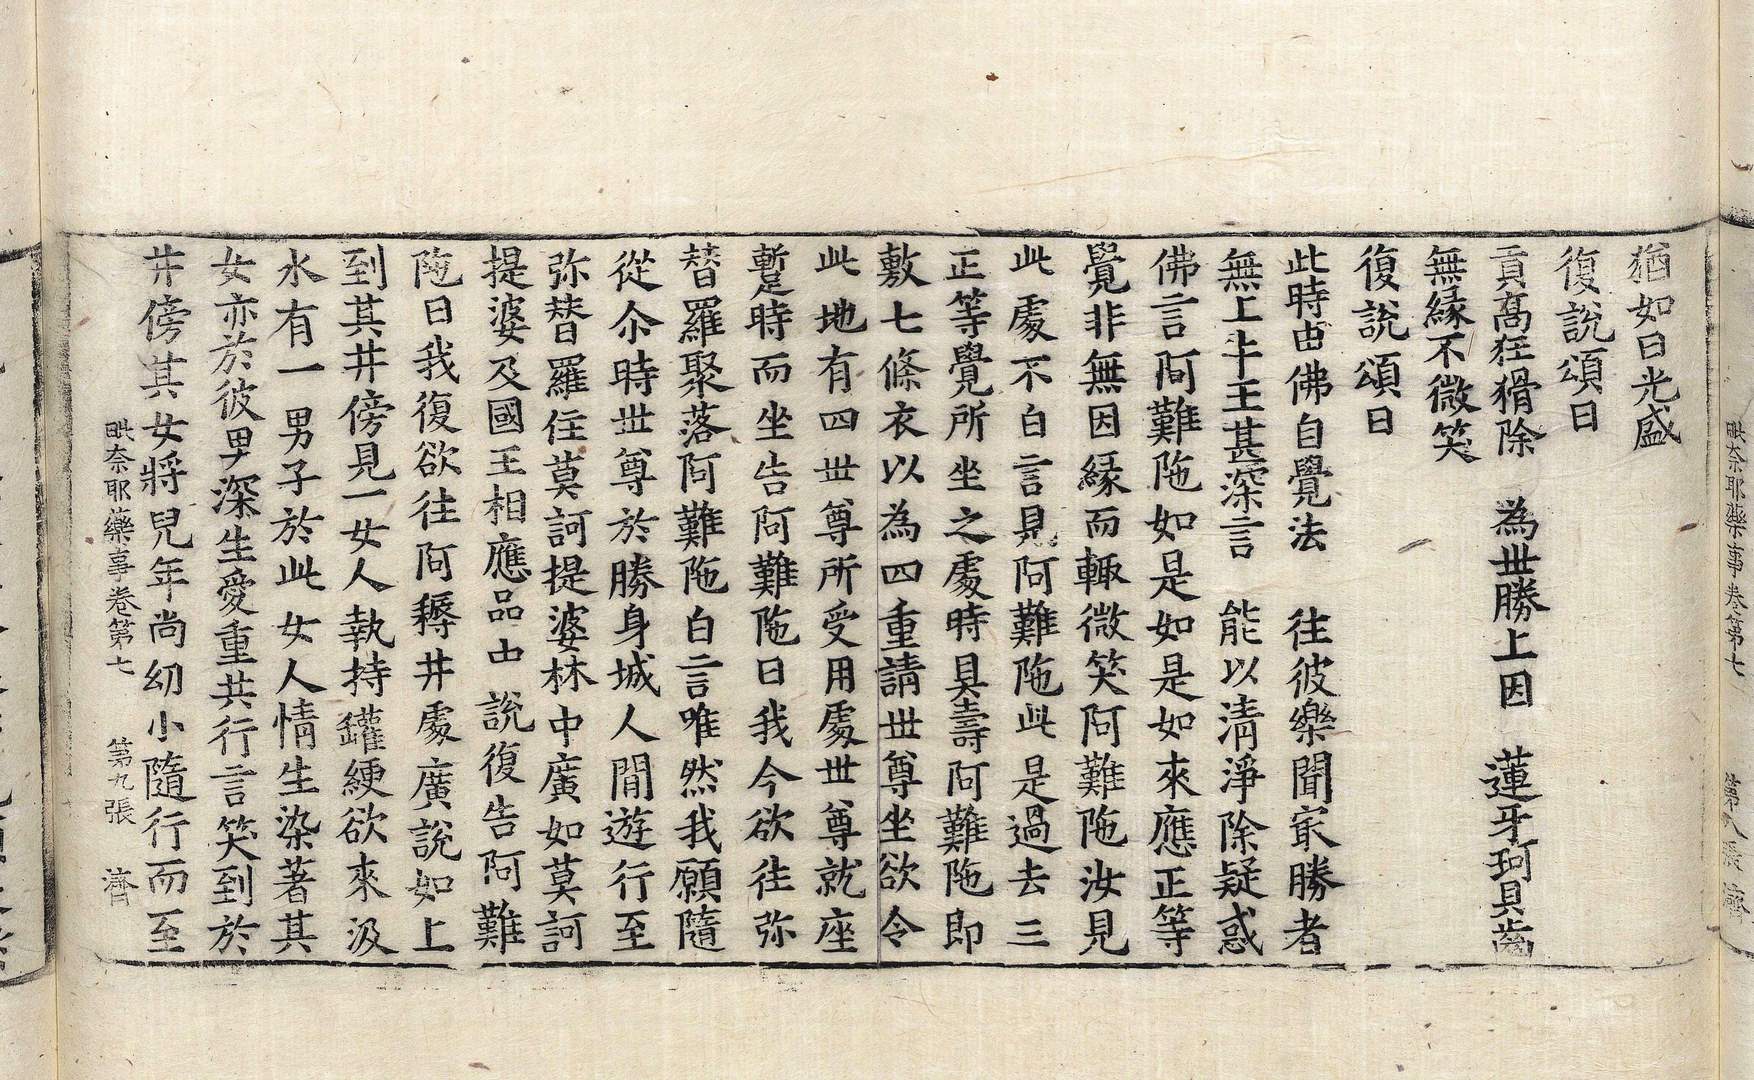 猶如日光盛
復說頌曰
貢高狂猾除　為世勝上因　蓮牙珂貝齒
無緣不微笑
復說頌曰
此時由佛自覺法　往彼樂聞冣勝者
無上牛王甚深言　能以清淨除疑惑
佛言阿難陁如是如是如來應正等
覺非無因緣而輙微笑阿難陁汝見
此處不白言見阿難陁此是過去三
正等覺所坐之處時具壽阿難陁即
敷七條衣以為四重請世尊坐欲令
此地有四世尊所受用處世尊就座
蹔時而坐告阿難陁曰我今欲往弥
替羅聚落阿難陁白言唯然我願隨
從尒時世尊於勝身城人間遊行至
弥替羅住莫訶提婆林中廣如莫訶
提婆及國王相應品中說復告阿難
陁曰我復欲往阿耨井處廣說如上
到其井傍見一女人執持鑵綆欲來汲
水有一男子於此女人情生染著其
女亦於彼男深生愛重共行言笑到於
井傍其女將兒年尚幼小隨行而至
毗奈耶藥事卷第七　第九張　濟